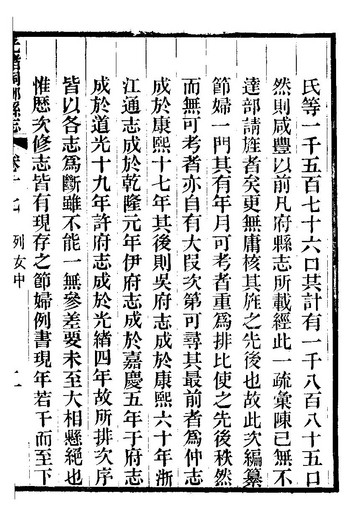 氏等一千五百七十六口其計有一千八百八十五口
然則咸豐以前凡府縣志所載經此一疏彙陳已無不
達部請旌者矣更無庸核其旌之先後也故此次編纂
節婦一門其有年月可考者重爲排比使之先後秩然
而無可考者亦自有大段次第可尋其最前者爲仲志
成於康熙十七年其後則吳府志成於康熙六十年浙
江通志成於乾隆元年伊府志成於嘉慶五年于府志
成於道光十九年許府志成於光緖四年故所排次序
皆以各志爲斷雖不能一無參差要未至大相懸絕也
惟歷次修志皆有現存之節婦例書現年若干而至下
桐鄉縣志
卷十七
列女中
二